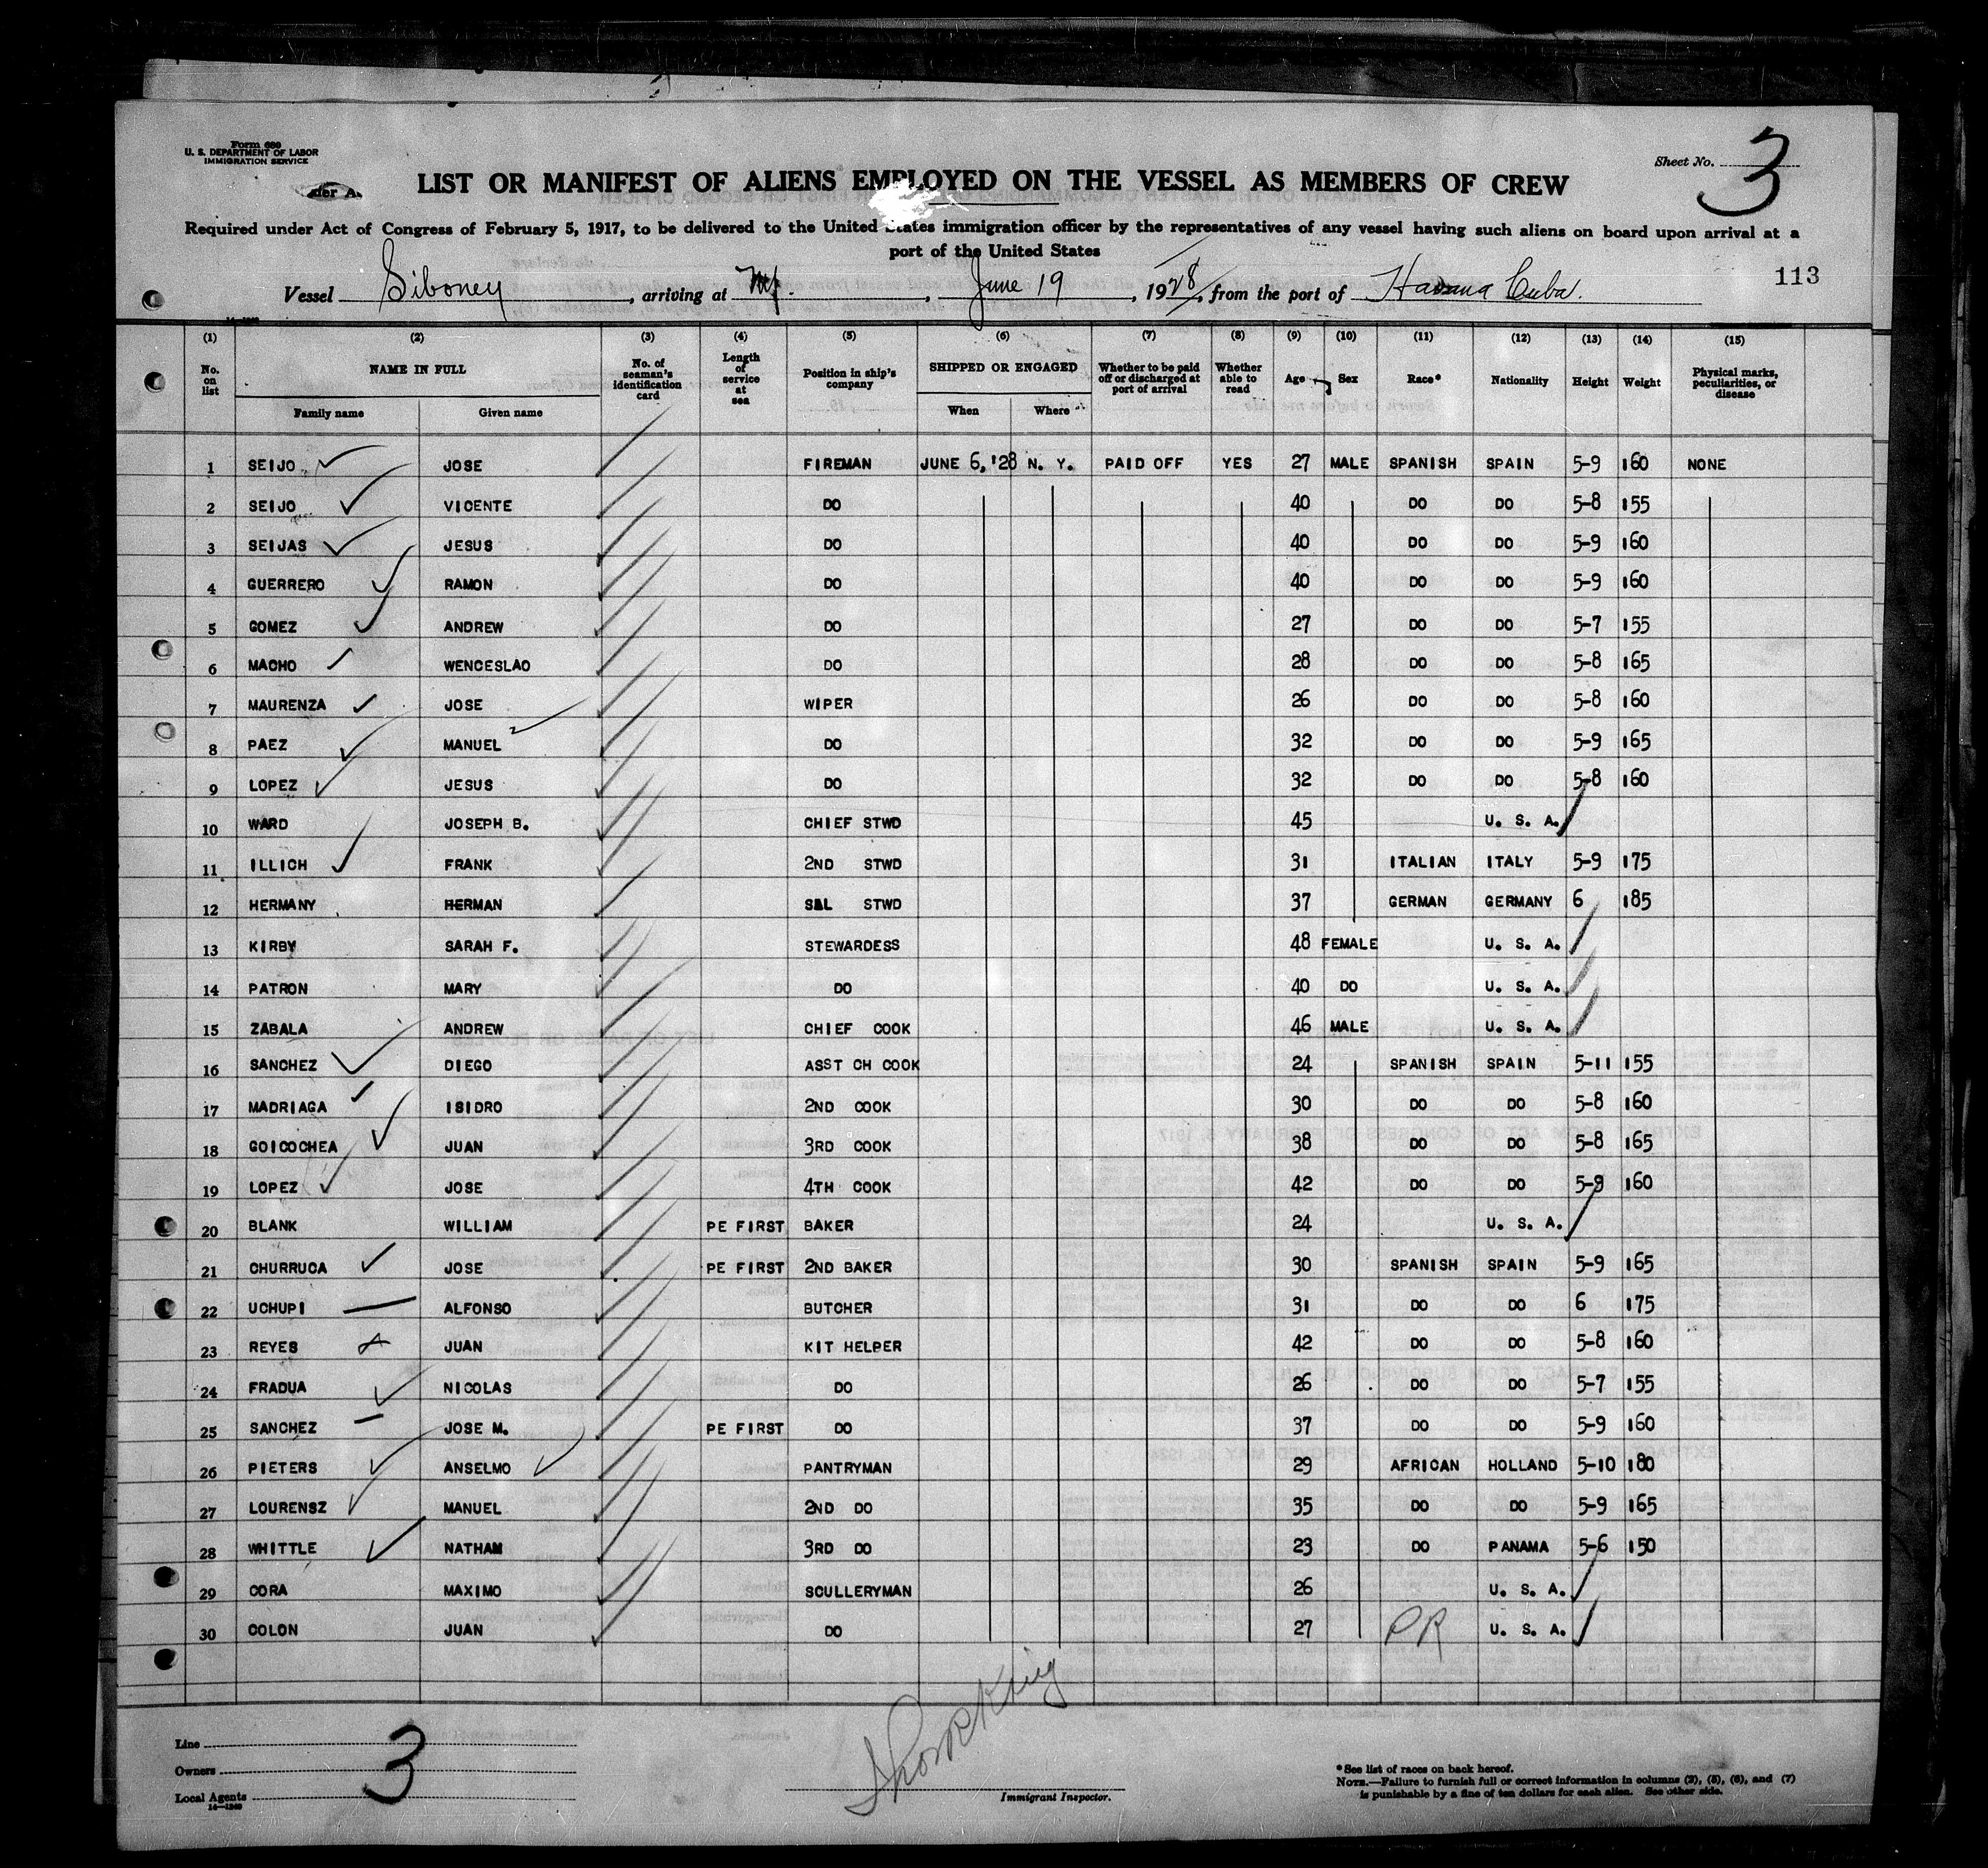 Form 680
U. S. DEPARTMENT OF LABOR
IMMIGRATION SERVICE
Sheet No. 3
LIST OR MANIFEST OF ALIENS EMPLOYED ON THE VESSEL AS MEMBERS OF CREW
Required under Act of Congress of February 5, 1917, to be delivered to the United States immigration officer by the representatives of any vessel having such aliens on board upon arrival at a
port of the United States
113
Vessel Siboney, arriving at , June 19, 1928, from the port of Havana Cuba.
(1) (2) (3) (4) (5) (6) (7) (8) (9) (10) (11) (12) (13) (14) (15)
No. on list NAME IN FULL No. of seaman's identification card Length of service at sea Position in ship's company SHIPPED OR ENGAGED Whether to be paid off or discharged at port of arrival Whether able to read Age Sex Race* Nationality Height Weight Physical marks, peculiarities, or disease
Family name Given name When Where
1 SEIJO JOSE FIREMAN JUNE 6, '28 N. Y. PAID OFF YES 27 MALE SPANISH SPAIN 5-9 160 NONE
2 SEIJO VICENTE DO 40 DO DO 5-8 155
3 SEIJAS JESUS DO 40 DO DO 5-9 160
4 GUERRERO RAMON DO 40 DO DO 5-9 160
5 GOMEZ ANDREW DO 27 DO DO 5-7 155
6 MACHO WENCESLAO DO 28 DO DO 5-8 165
7 MAURENZA JOSE WIPER 26 DO DO 5-8 160
8 PAEZ MANUEL DO 32 DO DO 5-9 165
9 LOPEZ JESUS DO 32 DO DO 5-8 160
10 WARD JOSEPH B. CHIEF STWD 45 U. S. A.
11 ILLICH FRANK 2ND STWD 31 ITALIAN ITALY 5-9 175
12 HERMANY HERMAN S&L STWD 37 GERMAN GERMANY 6 185
13 KIRBY SARAH F. STEWARDESS 48 FEMALE U. S. A.
14 PATRON MARY DO 40 DO U. S. A.
15 ZABALA ANDREW CHIEF COOK 46 MALE U. S. A.
16 SANCHEZ DIEGO ASST CH COOK 24 SPANISH SPAIN 5-11 155
17 MADRIAGA ISIDRO 2ND COOK 30 DO DO 5-8 160
18 GOICOCHEA JUAN 3RD COOK 38 DO DO 5-8 165
19 LOPEZ JOSE 4TH COOK 42 DO DO 5-9 160
20 BLANK WILLIAM PE FIRST BAKER 24 U. S. A.
21 CHURRUCA JOSE PE FIRST 2ND BAKER 30 SPANISH SPAIN 5-9 165
22 UCHUPI ALFONSO BUTCHER 31 DO DO 6 175
23 REYES JUAN KIT HELPER 42 DO DO 5-8 160
24 FRADUA NICOLAS DO 26 DO DO 5-7 155
25 SANCHEZ JOSE M. PE FIRST DO 37 DO DO 5-9 160
26 PIETERS ANSELMO PANTRYMAN 29 AFRICAN HOLLAND 5-10 180
27 LOURENSZ MANUEL 2ND DO 35 DO DO 5-9 165
28 WHITTLE NATHAM 3RD DO 23 DO PANAMA 5-6 150
29 CORA MAXIMO SCULLERYMAN 26 U. S. A.
30 COLON JUAN DO 27 PR U. S. A.
Line
Owners
Local Agents
14—1240
3
Immigrant Inspector.
*See list of races on back hereof.
NOTE.—Failure to furnish full or correct information in columns (2), (5), (6), and (7)
is punishable by a fine of ten dollars for each alien. See other side.